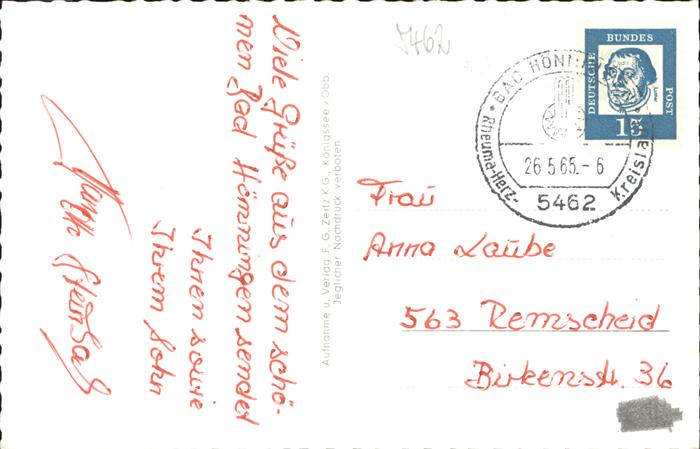 Viele Grüße aus dem schö-
nen Bad Hönningen sendet
Ihnen sowie
Ihrem Sohn
Aufnahme u. Verlag F. G. Zeitz KG., Königssee / Obb.
Jeglicher Nachdruck verboten
5462
DEUTSCHE
BUNDES
POST
15
BAD HÖNNIN
26.5.65.-6
5462
Rheuma-Herz-
Kreisla
Frau
Anna Laube
563 Remscheid
Birkenstr. 36